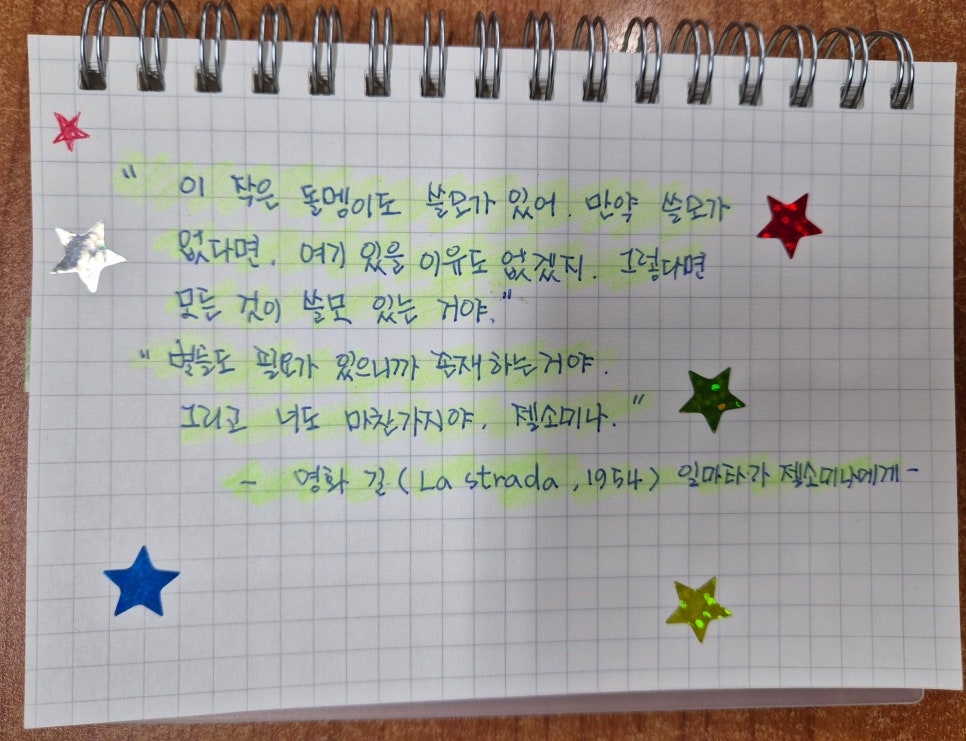 " 이 작은 돌멩이도 쓸모가 있어. 만약 쓸모가
없다면, 여기 있을 이유도 없겠지. 그렇다면
모든 것이 쓸모 있는 거야."
" 별들도 필요가 있으니까 존재하는거야.
그리고 너도 마찬가지야, 젤소미나."
- 영화 길 (La strada, 1954) 일마타가 젤소미나에게 -